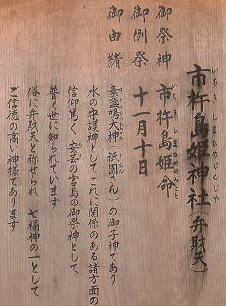 市杵島姫神社（弁財天）
いちきしまひめじんじゃ
御祭神 市杵島姫命
いちきしまひめのみこと
御例祭 十一月十日
御由緒
素盞鳴大神（祇園さん）の御子神であり
水の守護神として、これに関係のある諸方面の
信仰篤く 安芸の宮島の御祭神として
普く世に知られています
俗に弁財天と称せられ 七福神の一として
ご信徳の高い神様であります